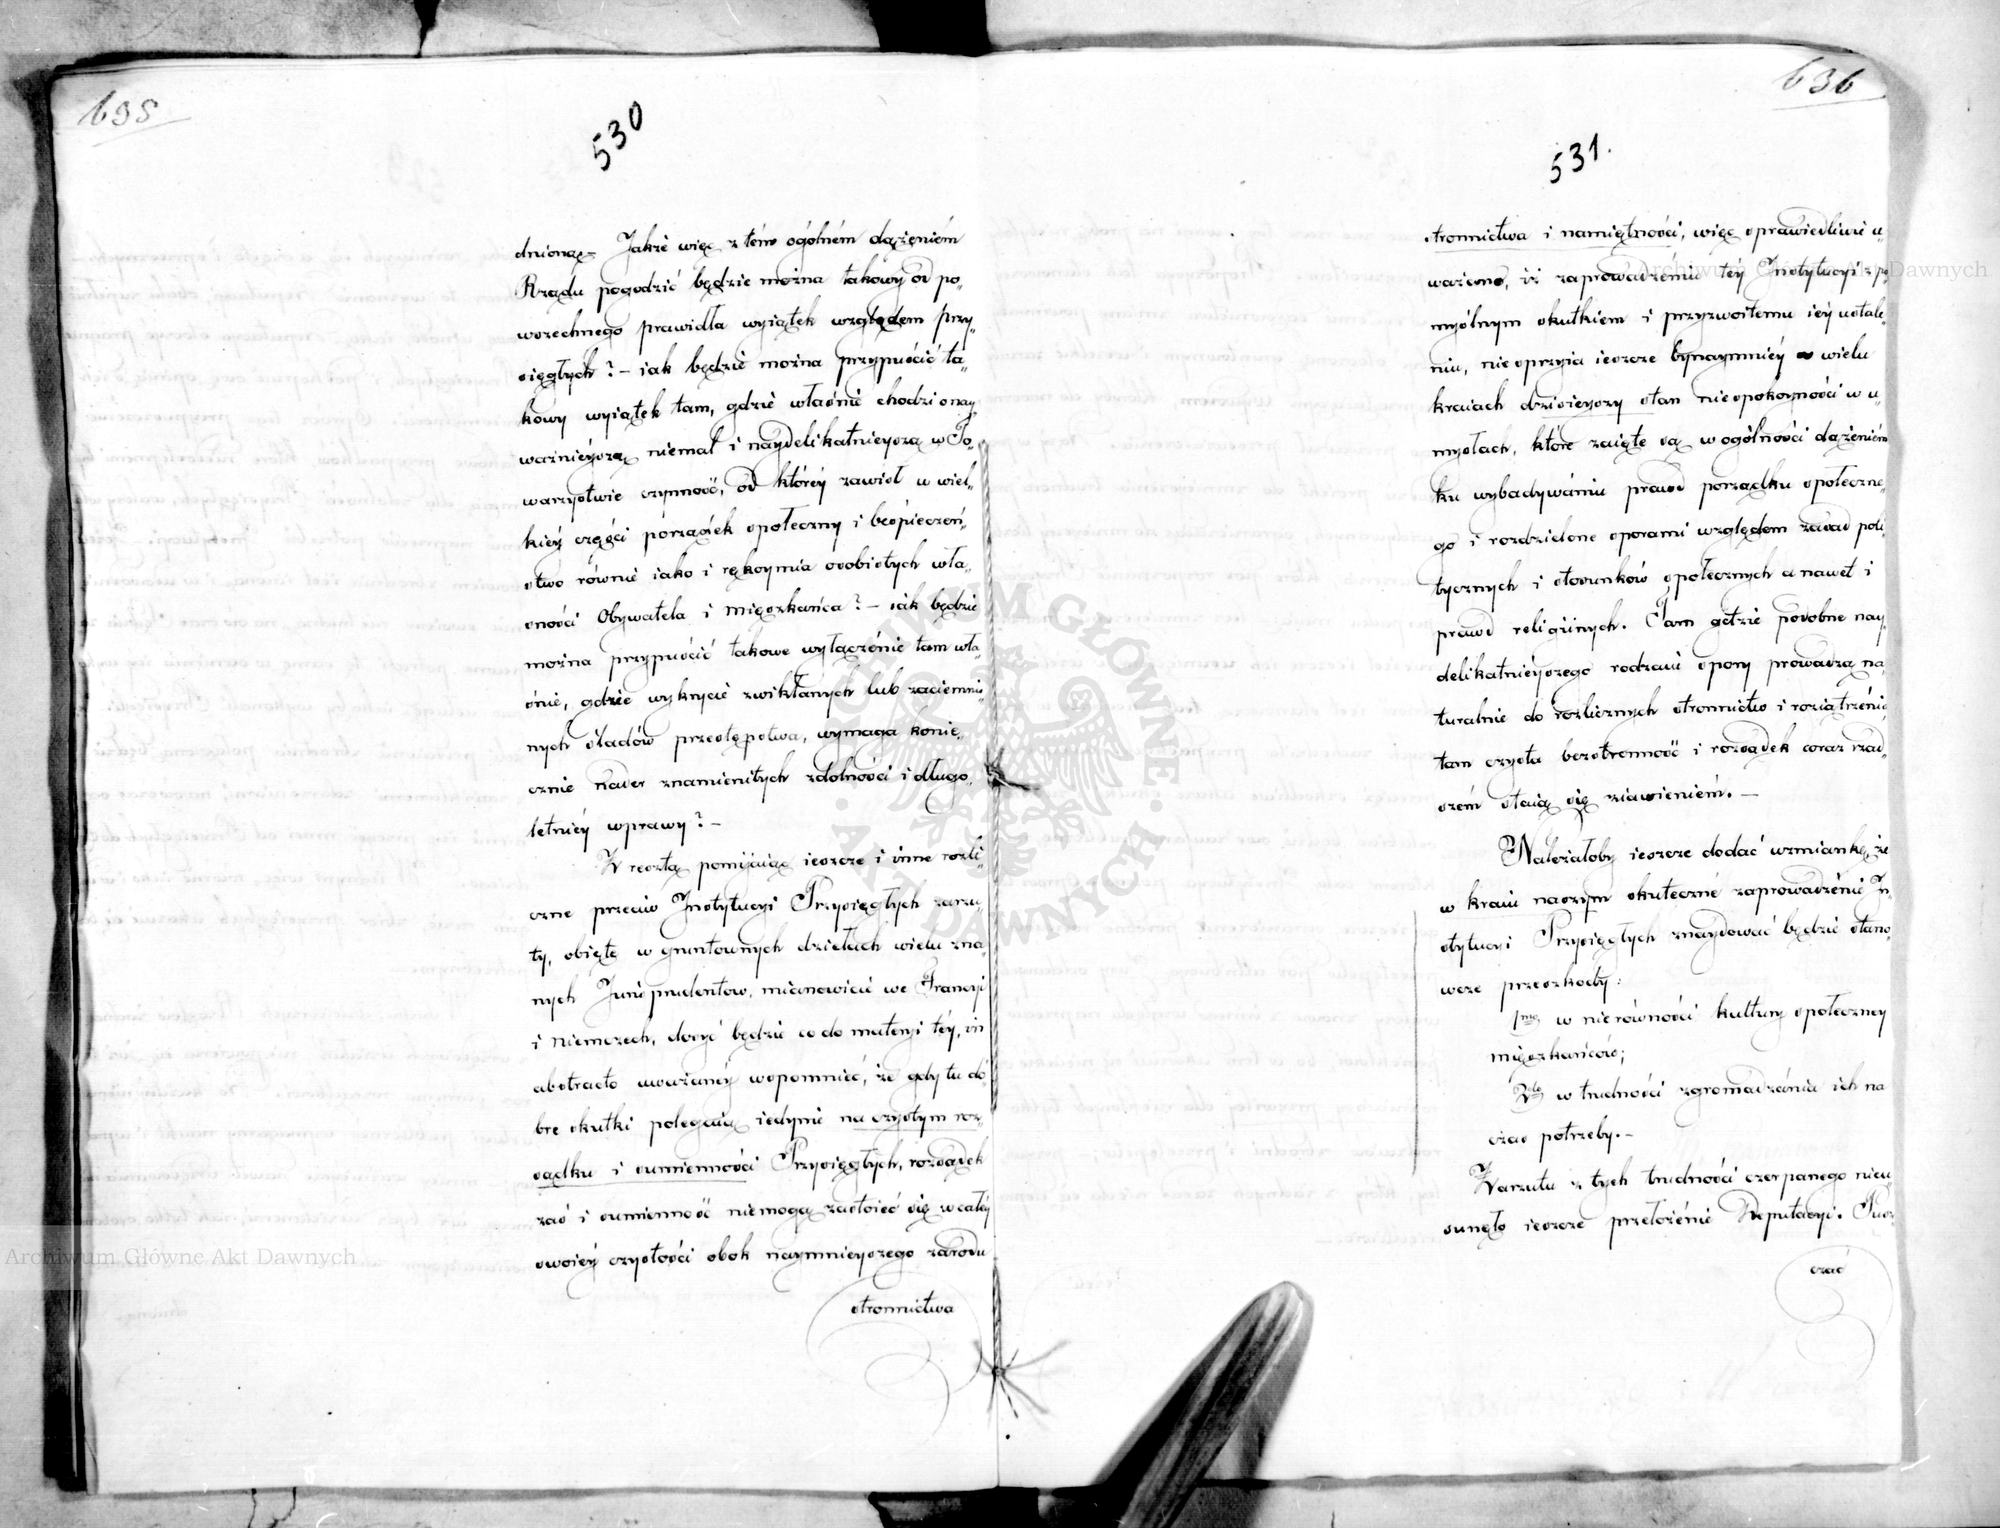 635
530
dnionąz- Jakże więc z tém ogólném dążeniem
Rządu pogodzić będzie można takowy od po„
wszechnego prawidła wyiątek względem przy„
sięgłych? - iak będzie można przypuścić ta„
kowy wyiątek tam, gdzie właśnie chodzi o nay„
ważnieyszą niemal i naydelikatnieyszą w To„
warzystwie czynność, od któréy zawisł w wiel„
kiéy części porządek społeczny i bespieczeń„
stwo równie iako i rękoymia osobistych wła„
sności Obywatela i mięszkańca? - iak będzie
można przypuścić takowe wyłączénie tam wła„
śnie, gdzie wykrycie zwikłanych lub zaciemnio„
nych śladów przestępstwa, wymaga konie„
cznie nader znamienitych zdolności i długo„
letniéy wprawy? -
W resztą pomijaiąc ieszcze i inne rozli„
czne przeciw Instytucyi Przysięgłych zarzu„
ty, obięte w gruntownych dziełach wielu zna„
nych Jurisprudentow, mianowicie we Francyi
i Niemczech, dosyć będzie co do materyi téy, in
abstracto uważanéy wspomnieć, że gdy tu do„
bre skutki polegaią iedynie na czystym roz„
sądku i sumienności Przysięgłych, rozsądek
zaś i sumienność niemogą zaostoieć się w całéy
swoiéy czystości obok naymnieyszego zarodu
stronnictwa
636
531.
stronnictwa i namiętności, więc sprawiedliwie u„
ważono, iż zaprowadzéniu téy Instytucyi z po„
myślnym skutkiem i przyzwoitemu iéy ustale„
niu, nie sprzyia ieszcze bynaymniéy w wielu
kraiach dzisieyszy stan niespokoyności w u„
mysłach, które zaięte są w ogólności dążeniém
ku wybadywániu prawd porządku społeczne„
go i rozdzielone sporami względem zasad poli„
tycznych i stosunków społecznych a nawet i
prawd religiinych. Tam gdzie podobne nay„
delikatnieyszego rodzaiu spory prowadzą na„
turalnie do rozlicznych stronnictw i roziątrzénia,
tam czysta bezstronność i rozsądek coraz rzad„
szém staią się ziawieniém. -
Należałoby ieszcze dodać wzmiankę, że
w kraiu naszym skuteczné zaprowadzénie In„
stytucyi Przysięgłych znaydować będzie stano„
wcze przeszkody:
1mo w nierówności kultury społeczney
mięszkańców;
2do w trudności zgromadzánia ich na
czas potrzeby. -
Zarzutu z tych trudności czerpanego nieu„
sunęło ieszcze przełożénie Deputacyi. Pusz„
czać